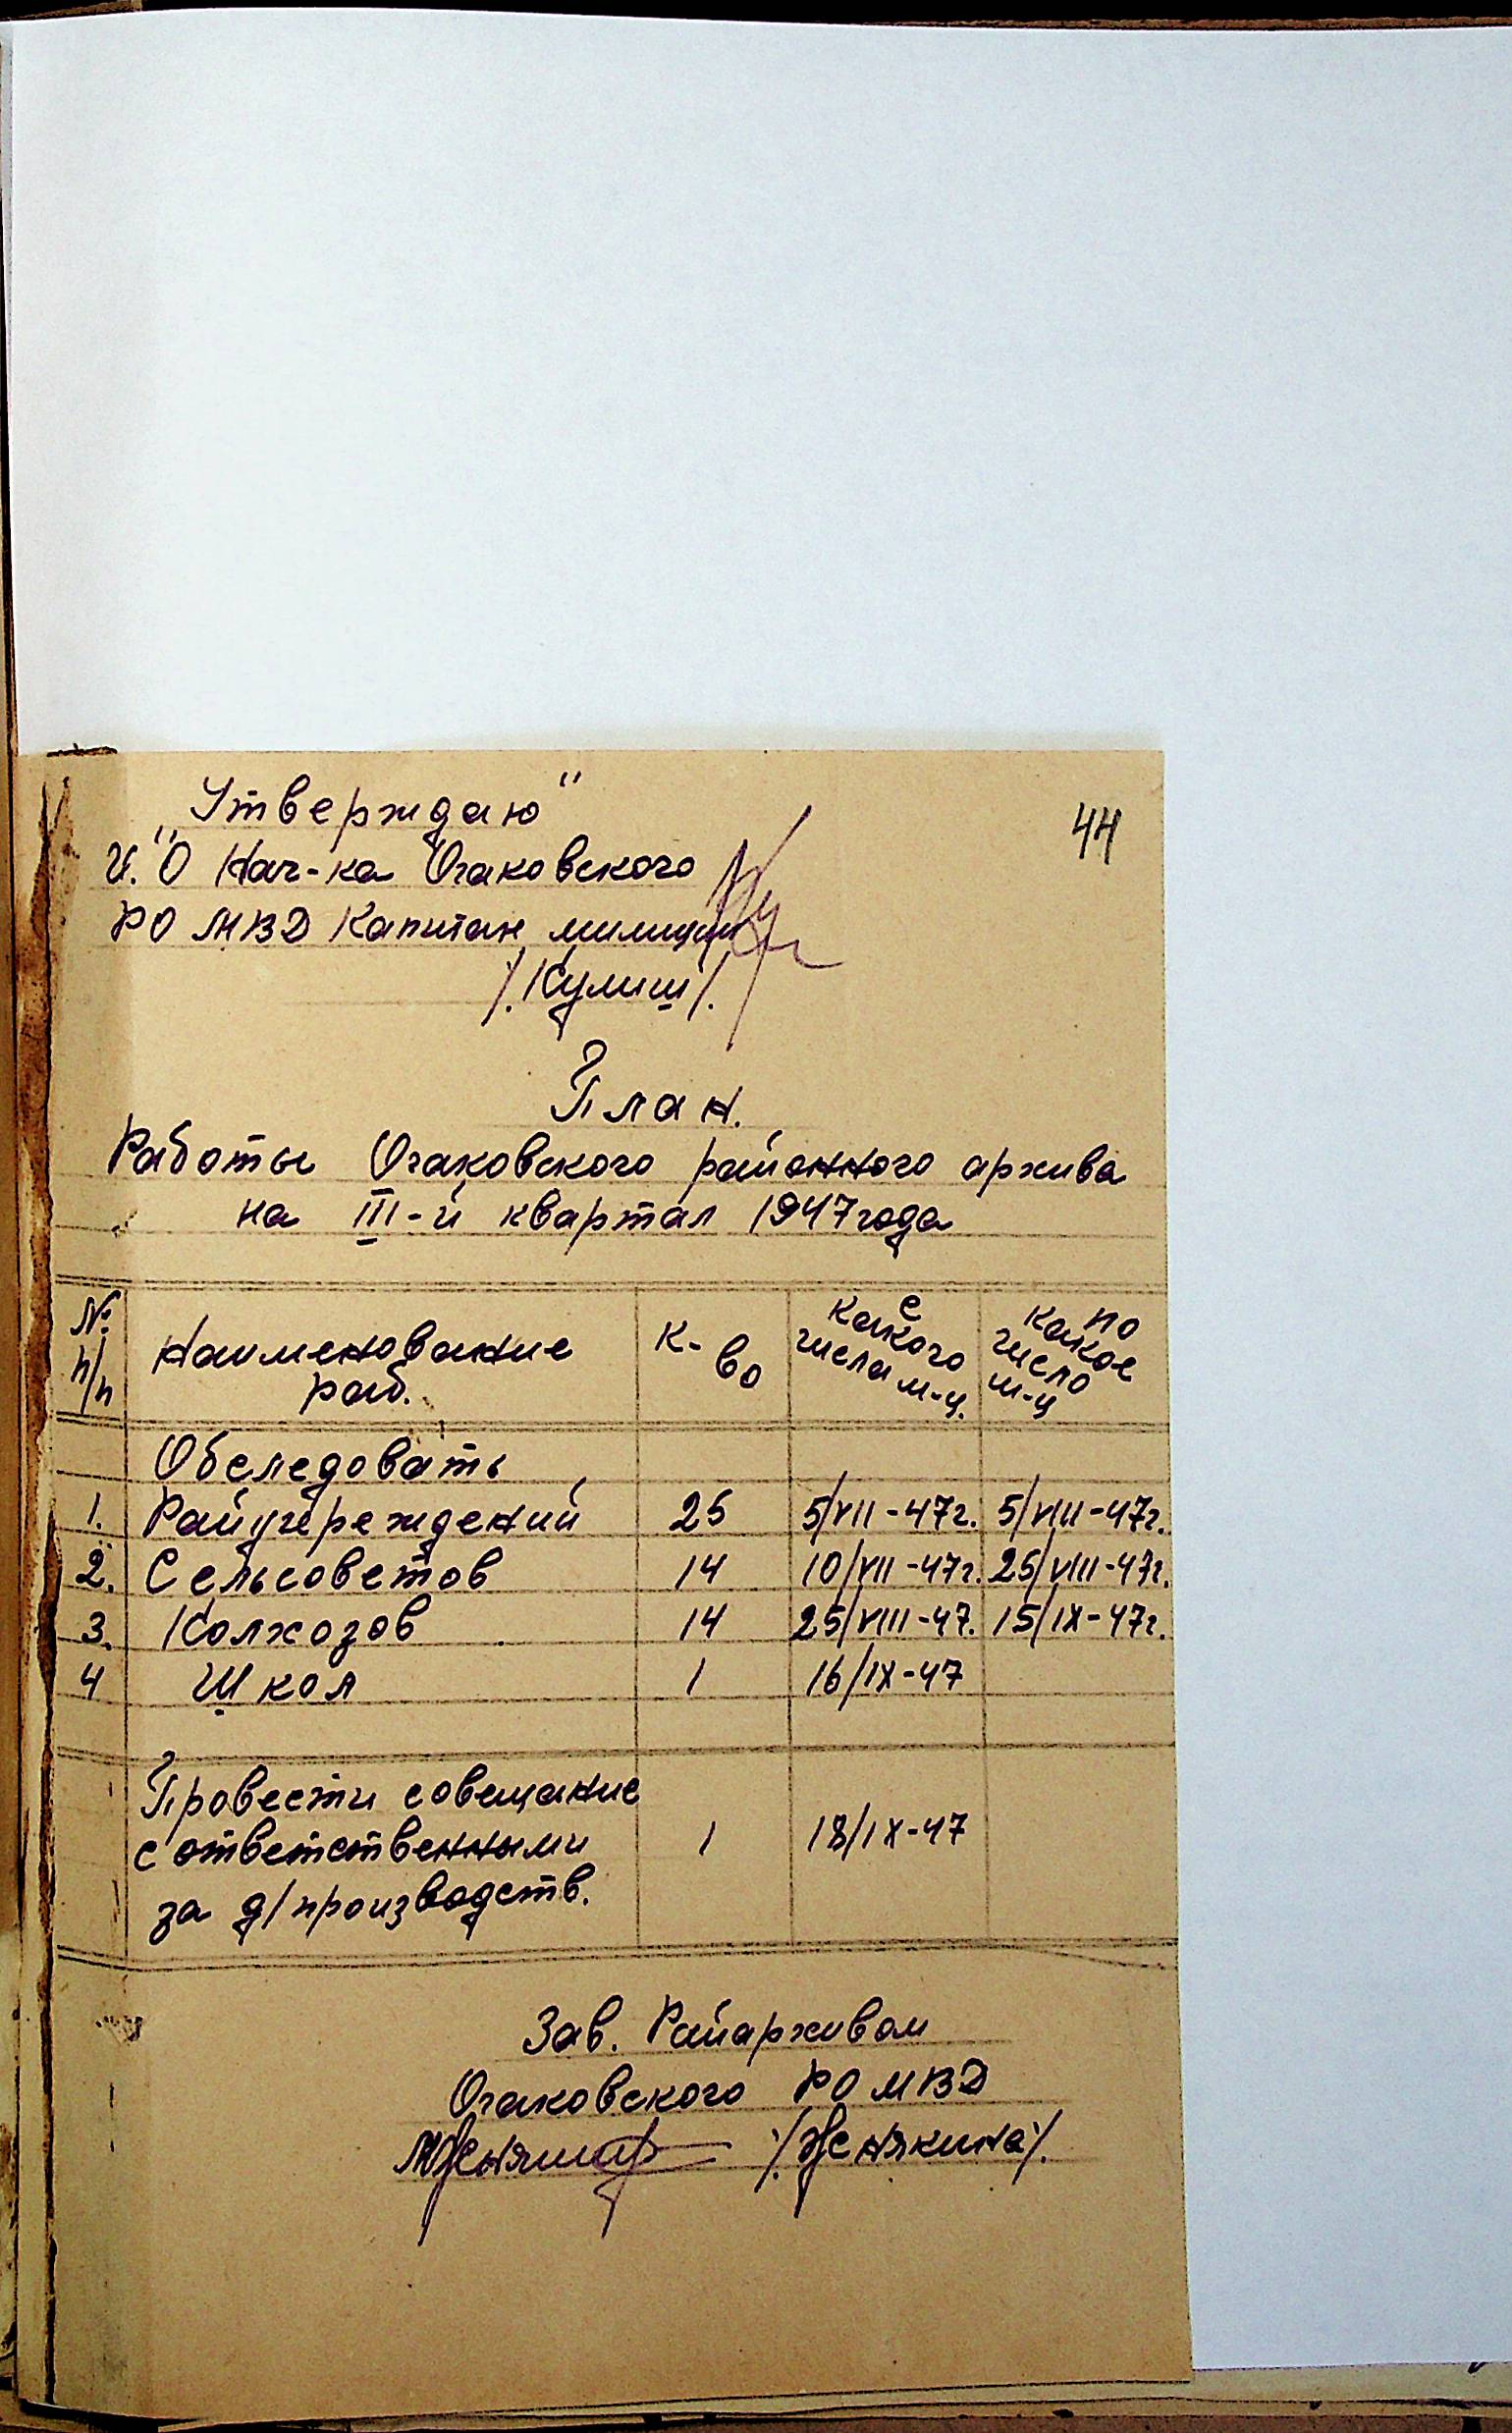 „Утверждаю"
44
И.О Нач-ка Очаковского
РО МВД Капитан милиции
/.Кулиш/.
План.
Работы Очаковского районного архива
на III-й квартал 1947 года
№ п/п Наименование раб. К-во с какого числа м-ц. по какое число м-ц
Обследовать
1. Райучреждений 25 5/VII-47г. 5/VIII-47г.
2. Сельсоветов 14 10/VII-47г. 25/VIII-47г.
3. Колхозов 14 25/VIII-47. 15/IX-47г.
4 Школ 1 16/IX-47
Провести совещание
с ответственными 1 18/IX-47
за д/производств.
Зав. Райархивом
Очаковского РО МВД
/.Женякина/.